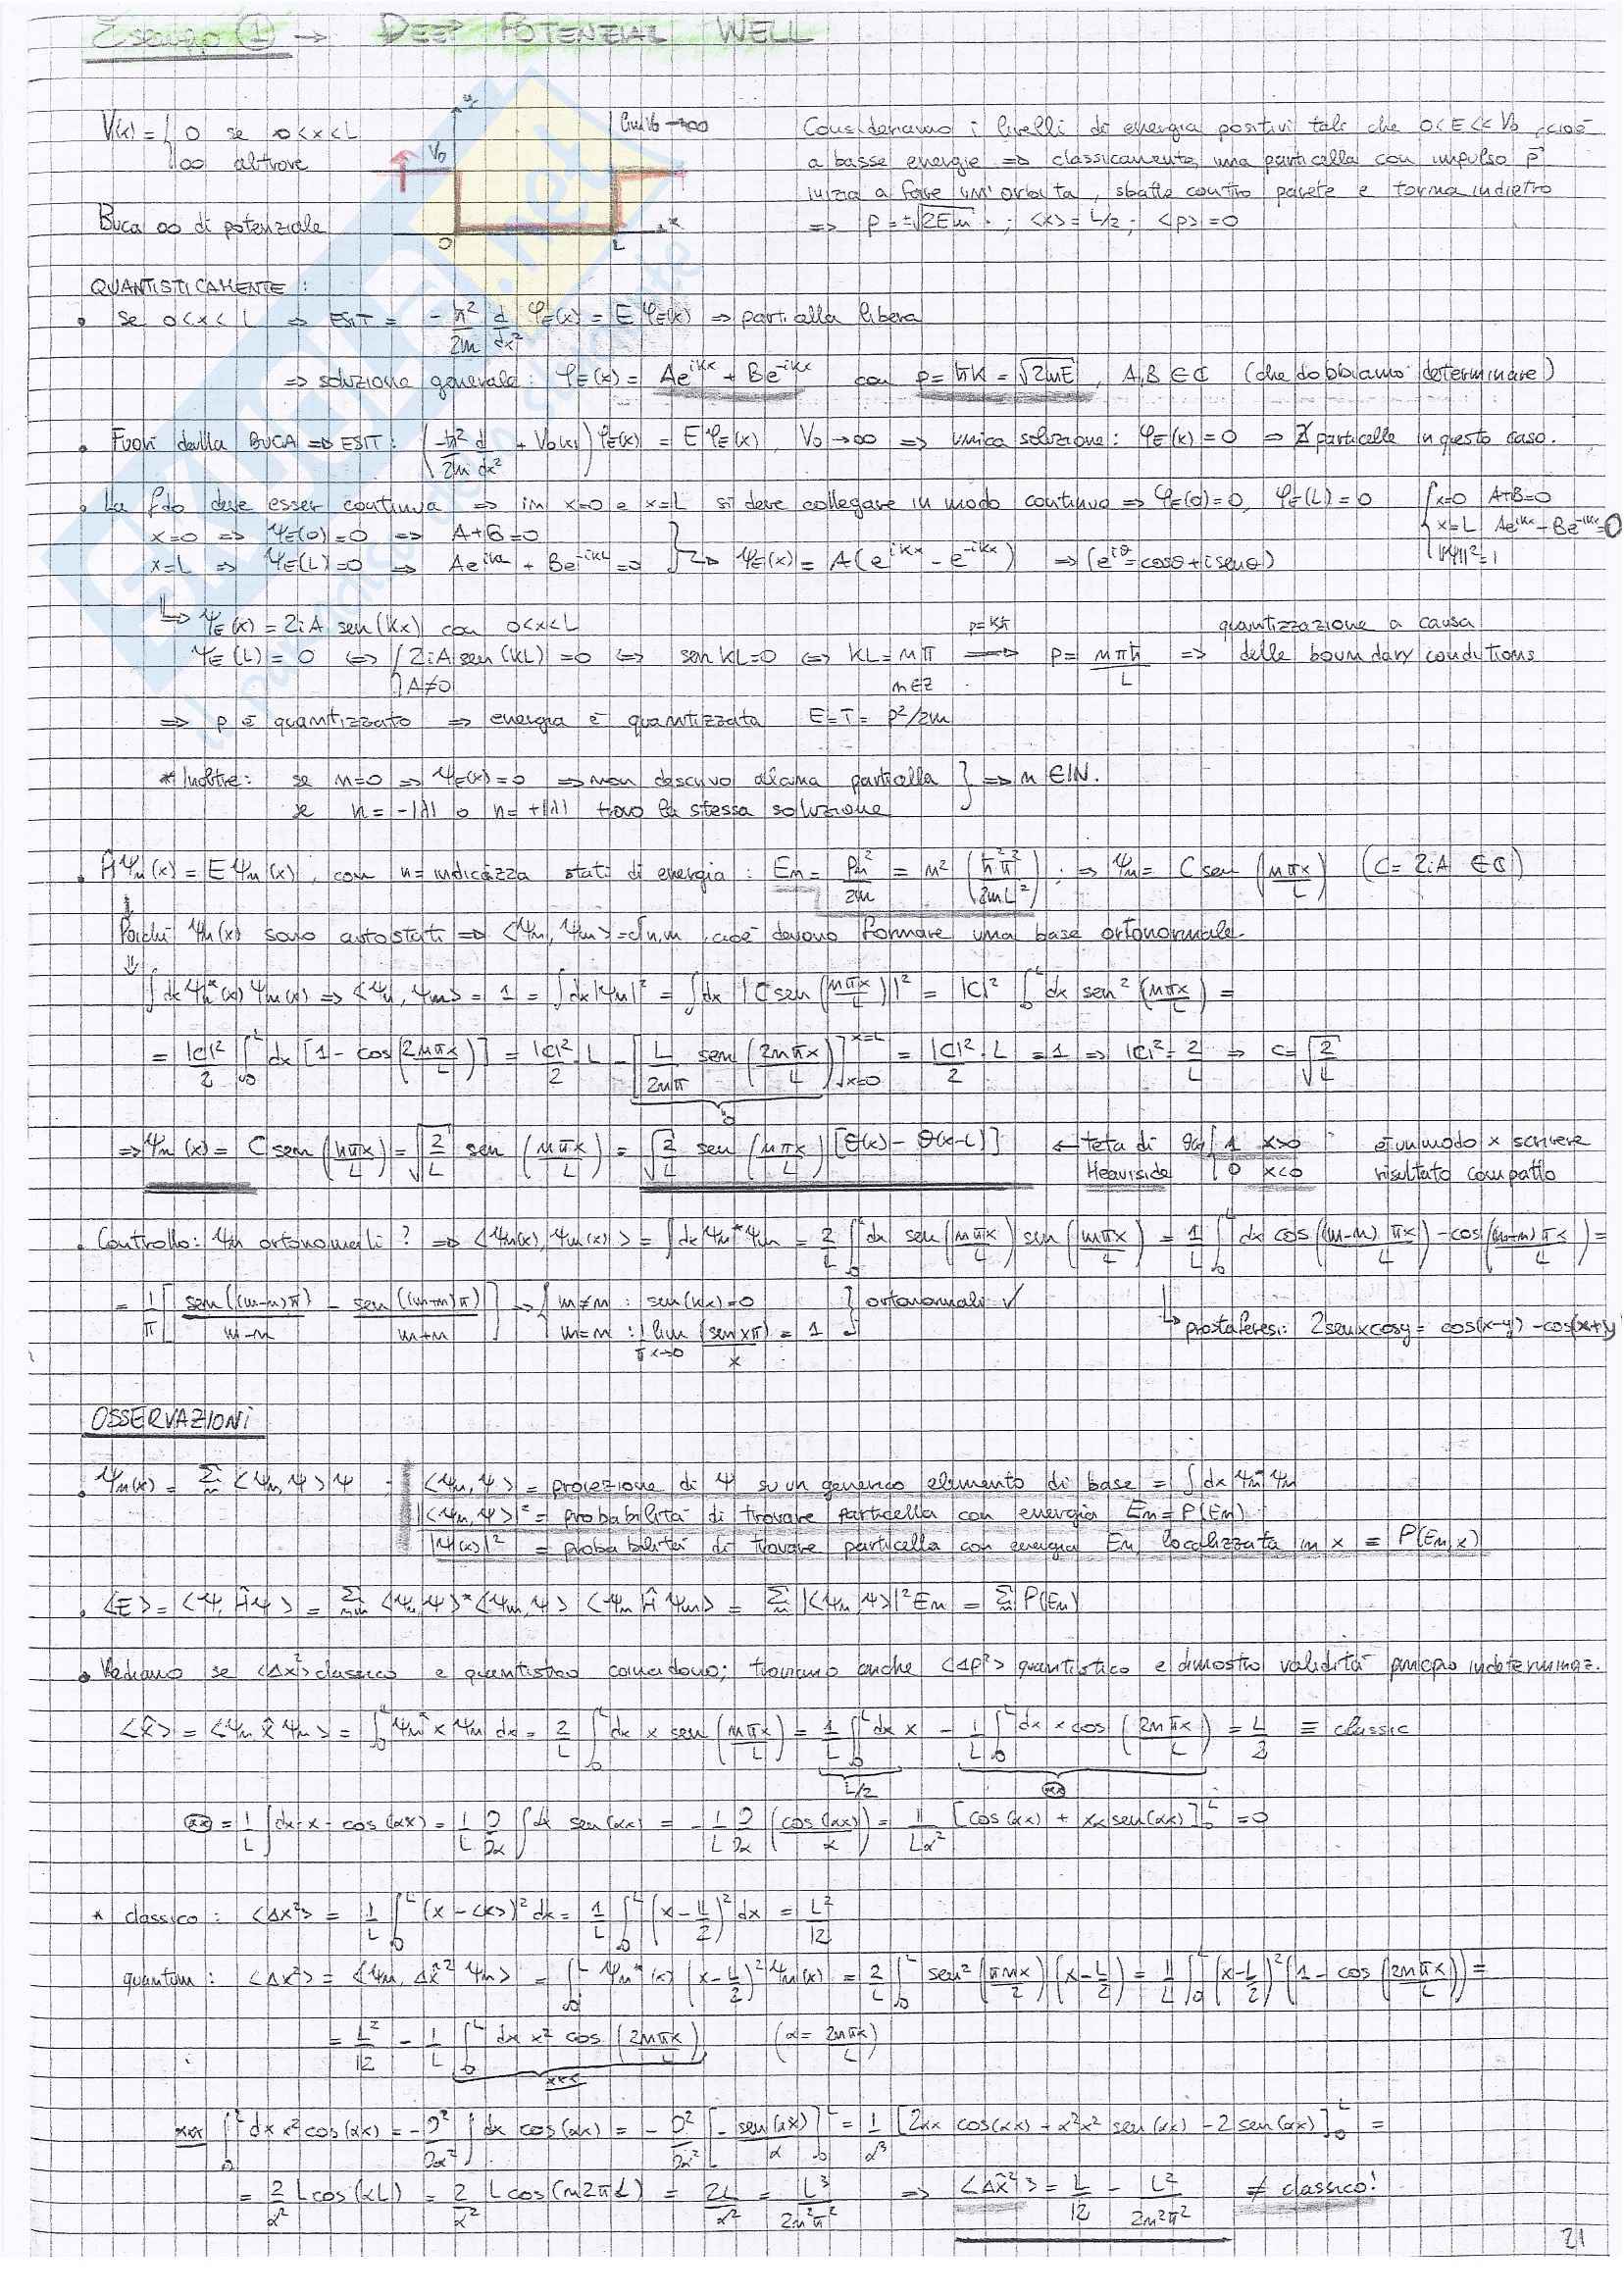 Esempio ① → DEEP POTENZIAL WELL
V(x) = { 0 se 0<x<L
∞ altrove
Buca ∞ di potenziale
V₀
lim V₀→∞
0 L x
Consideriamo i livelli di energia positivi tali che 0<E<<V₀, cioè
a basse energie ⇒ classicamente una particella con impulso p
inizia a fare un'orbita, sbatte contro parete e torna indietro
⇒ p = ±√2Em ; <x> = L/2 ; <p> = 0
QUANTISTICAMENTE :
• Se 0<x<L ⇒ ESIT = -ħ²/2m d/dx² φE(x) = E φE(x) ⇒ particella libera
⇒ soluzione generale: φE(x) = Ae^{ikx} + Be^{-ikx} con p = ħk = √2mE , A,B ∈ ℂ (che dobbiamo determinare)
• Fuori dalla BUCA ⇒ ESIT: (-ħ²/2m d/dx² + V₀(x)) φE(x) = E φE(x) V₀→∞ ⇒ unica soluzione: φE(x) = 0 ⇒ ∄ particelle in questo caso.
• La fdo deve esser continua ⇒ in x=0 e x=L si deve collegare in modo continuo ⇒ φE(0)=0, φE(L)=0 { x=0 A+B=0
x=0 ⇒ ψE(0)=0 ⇒ A+B=0
x=L ⇒ ψE(L)=0 ⇒ Ae^{ikL} + Be^{-ikL}=0 } ⇒ ψE(x) = A(e^{ikx} - e^{-ikx}) ⇒ (e^{iθ}=cosθ+i senθ)
↳ ψE(x) = 2iA sen(kx) con 0<x<L
ψE(L) = 0 ⇔ { 2iA sen(kL) = 0 ⇔ sen kL=0 ⇔ kL=nπ ⇒ p = nπħ/L ⇒
A≠0 n∈Z p=kħ
quantizzazione a causa
delle boundary conditions
⇒ p è quantizzato ⇒ energia è quantizzata E=T= p²/2m
* Inoltre: se n=0 ⇒ ψE(x)=0 ⇒ non descrivo alcuna particella } ⇒ n ∈ ℕ.
se n=-|λ| o n=+|λ| trovo la stessa soluzione
• Ĥψn(x) = Eψn(x), con n= indicizza stati di energia: En = pn²/2m = n² (ħ²π²/2mL²) ; ⇒ ψn = C sen (nπx/L) (C= 2iA ∈ ℂ)
Poiché ψn(x) sono autostati ⇒ <ψn, ψm> = δn,m, cioè devono formare una base ortonormale.
∫dx ψn*(x) ψm(x) ⇒ <ψn, ψm> = 1 = ∫dx|ψn|² = ∫dx |C sen (nπx/L)|² = |C|² ∫₀ᴸ dx sen² (nπx/L) =
= |C|²/2 ∫₀ᴸ dx [1 - cos(2nπx/L)] = |C|²/2 L - [L/2nπ sen (2nπx/L)]_{x=0}^{x=L} = |C|²/2 L = 1 ⇒ |C|² = 2/L ⇒ C=√2/L
⇒ ψn(x) = C sen (nπx/L) = √2/L sen (nπx/L) = √2/L sen (nπx/L) [θ(x) - θ(x-L)] ← teta di Heaviside θ(x) { 1 x>0
0 x<0
è un modo x scrivere
risultato compatto
• Controllo: ψn ortonormali? ⇒ <ψn(x), ψm(x)> = ∫dx ψn*ψm = 2/L ∫₀ᴸ dx sen (nπx/L) sen (mπx/L) = 1/L ∫₀ᴸ dx cos((m-n)πx/L) - cos((m+n)πx/L) =
= 1/π [sen((m-n)π)/m-n - sen((m+n)π)/m+n] → { m≠n : sen(kx)=0
m=n : lim (sen xπ)/x = 1 } ortonormali ✓
↳ prostaferesi: 2senxcosy = cos(x-y) - cos(x+y
OSSERVAZIONI
• ψn(x) = Σn <ψn,ψ>ψ <ψn,ψ> = proiezione di ψ su un generico elemento di base = ∫dx ψn*ψm
|<ψn,ψ>|² = probabilità di trovare particella con energia En = P(En)
|ψ(x)|² = probabilità di trovare particella con energia En localizzata in x = P(En,x)
• <E> = <ψ, Ĥψ> = Σn,m <ψn,ψ>* <ψm,ψ> <ψn Ĥ ψm> = Σn |<ψn,ψ>|² En = Σn P(En)
• Vediamo se <Δx²> classico e quantistico coincidono; troviamo anche <Δp²> quantistico e dimostro validità principio indeterminaz.
<x̂> = <ψn x̂ ψn> = ∫₀ᴸ ψn* x ψn dx = 2/L ∫₀ᴸ dx x sen (nπx/L) = 1/L ∫₀ᴸ dx x - 1/L ∫₀ᴸ dx x cos (2nπx/L) = L/2 ≡ classic
L/2
= 1/L ∫dx·x·cos(αx) = 1/L ∂/∂α ∫dx sen(αx) = -1/L ∂/∂α (cos(αx)/α) = 1/Lα² [cos(αx) + xα sen(αx)]₀ᴸ = 0
* classico: <Δx²> = 1/L ∫₀ᴸ (x - <x>)² dx = 1/L ∫₀ᴸ (x - L/2)² dx = L²/12
quantum: <Δx²> = <ψn, Δx̂² ψn> = ∫₀ᴸ ψn*(x) (x-L/2)² ψn(x) = 2/L ∫₀ᴸ sen² (πnx/2) (x-L/2) = 1/L ∫₀ᴸ (x-L/2)² (1 - cos (2nπx/L)) =
= L²/12 - 1/L ∫₀ᴸ dx x² cos (2nπx/L) (α = 2nπx/L)
xxx
xxx ∫₀ᴸ dx x² cos(αx) = -∂²/∂α² ∫dx cos(αx) = -∂²/∂α² [-sen(αx)/α]₀ᴸ = 1/α³ [2αx cos(αx) + α²x² sen(αx) - 2 sen(αx)]₀ᴸ =
= 2/α² L cos(αL) = 2/α² L cos(n2πL) = 2L/α² = L³/2n²π² ⇒ <Δx̂²> = L/12 - L²/2n²π² ≠ classico!
21